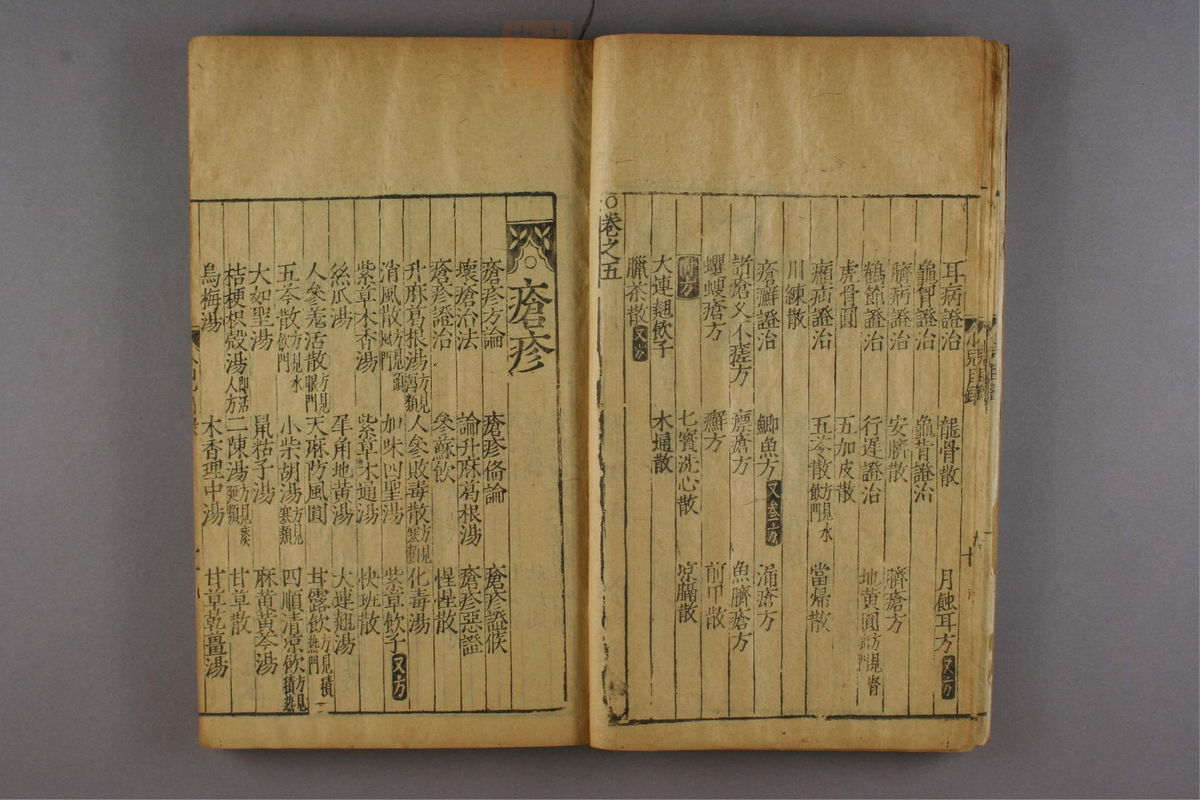 耳病證治 龍骨散 月蝕耳方 又方
龜胷證治 龜背證治
臍病證治 安臍散 臍瘡方
鶴節證治 行遲證治 地黄圓 方見腎
虎骨圓 五加皮散
㿗疝證治 五苓散 方見水飲門 當歸散
川練散
瘡癬證治 鯽魚方 又叁方 涌瘡方
諸瘡久不瘥方 瘭瘡方 魚臍瘡方
蠼螋瘡方 癬方 前甲散
附方 七寳洗心散 凉膈散
大連翹飲子 木通散
臘茶散 又方
○卷之五
瘡疹
瘡疹方論 瘡疹俻論 瘡疹證候
壞瘡治法 論升麻葛根湯 瘡疹惡證
瘡疹證治 參蘇飲 惺惺散
升麻葛根湯 方見瀉類 人參敗毒散 方見寒類 化毒湯
消風散 方見頭風門 加味四聖湯 紫草飲子 又方
紫草木香湯 紫草木通湯 快班散
絲瓜湯 犀角地黄湯 大連翹湯
人參羗活散 方見眼門 天麻防風圓 甘露飲 方見積熱門
五苓散 方見水飲門 小柴胡湯 方見寒類 四順清凉飲 方見積熱
大如聖湯 鼠粘子湯 麻黄黄芩湯
桔梗枳殼湯 即活人方 二陳湯 方見痰 甘草散
烏梅湯 木香理中湯 甘草乾薑湯